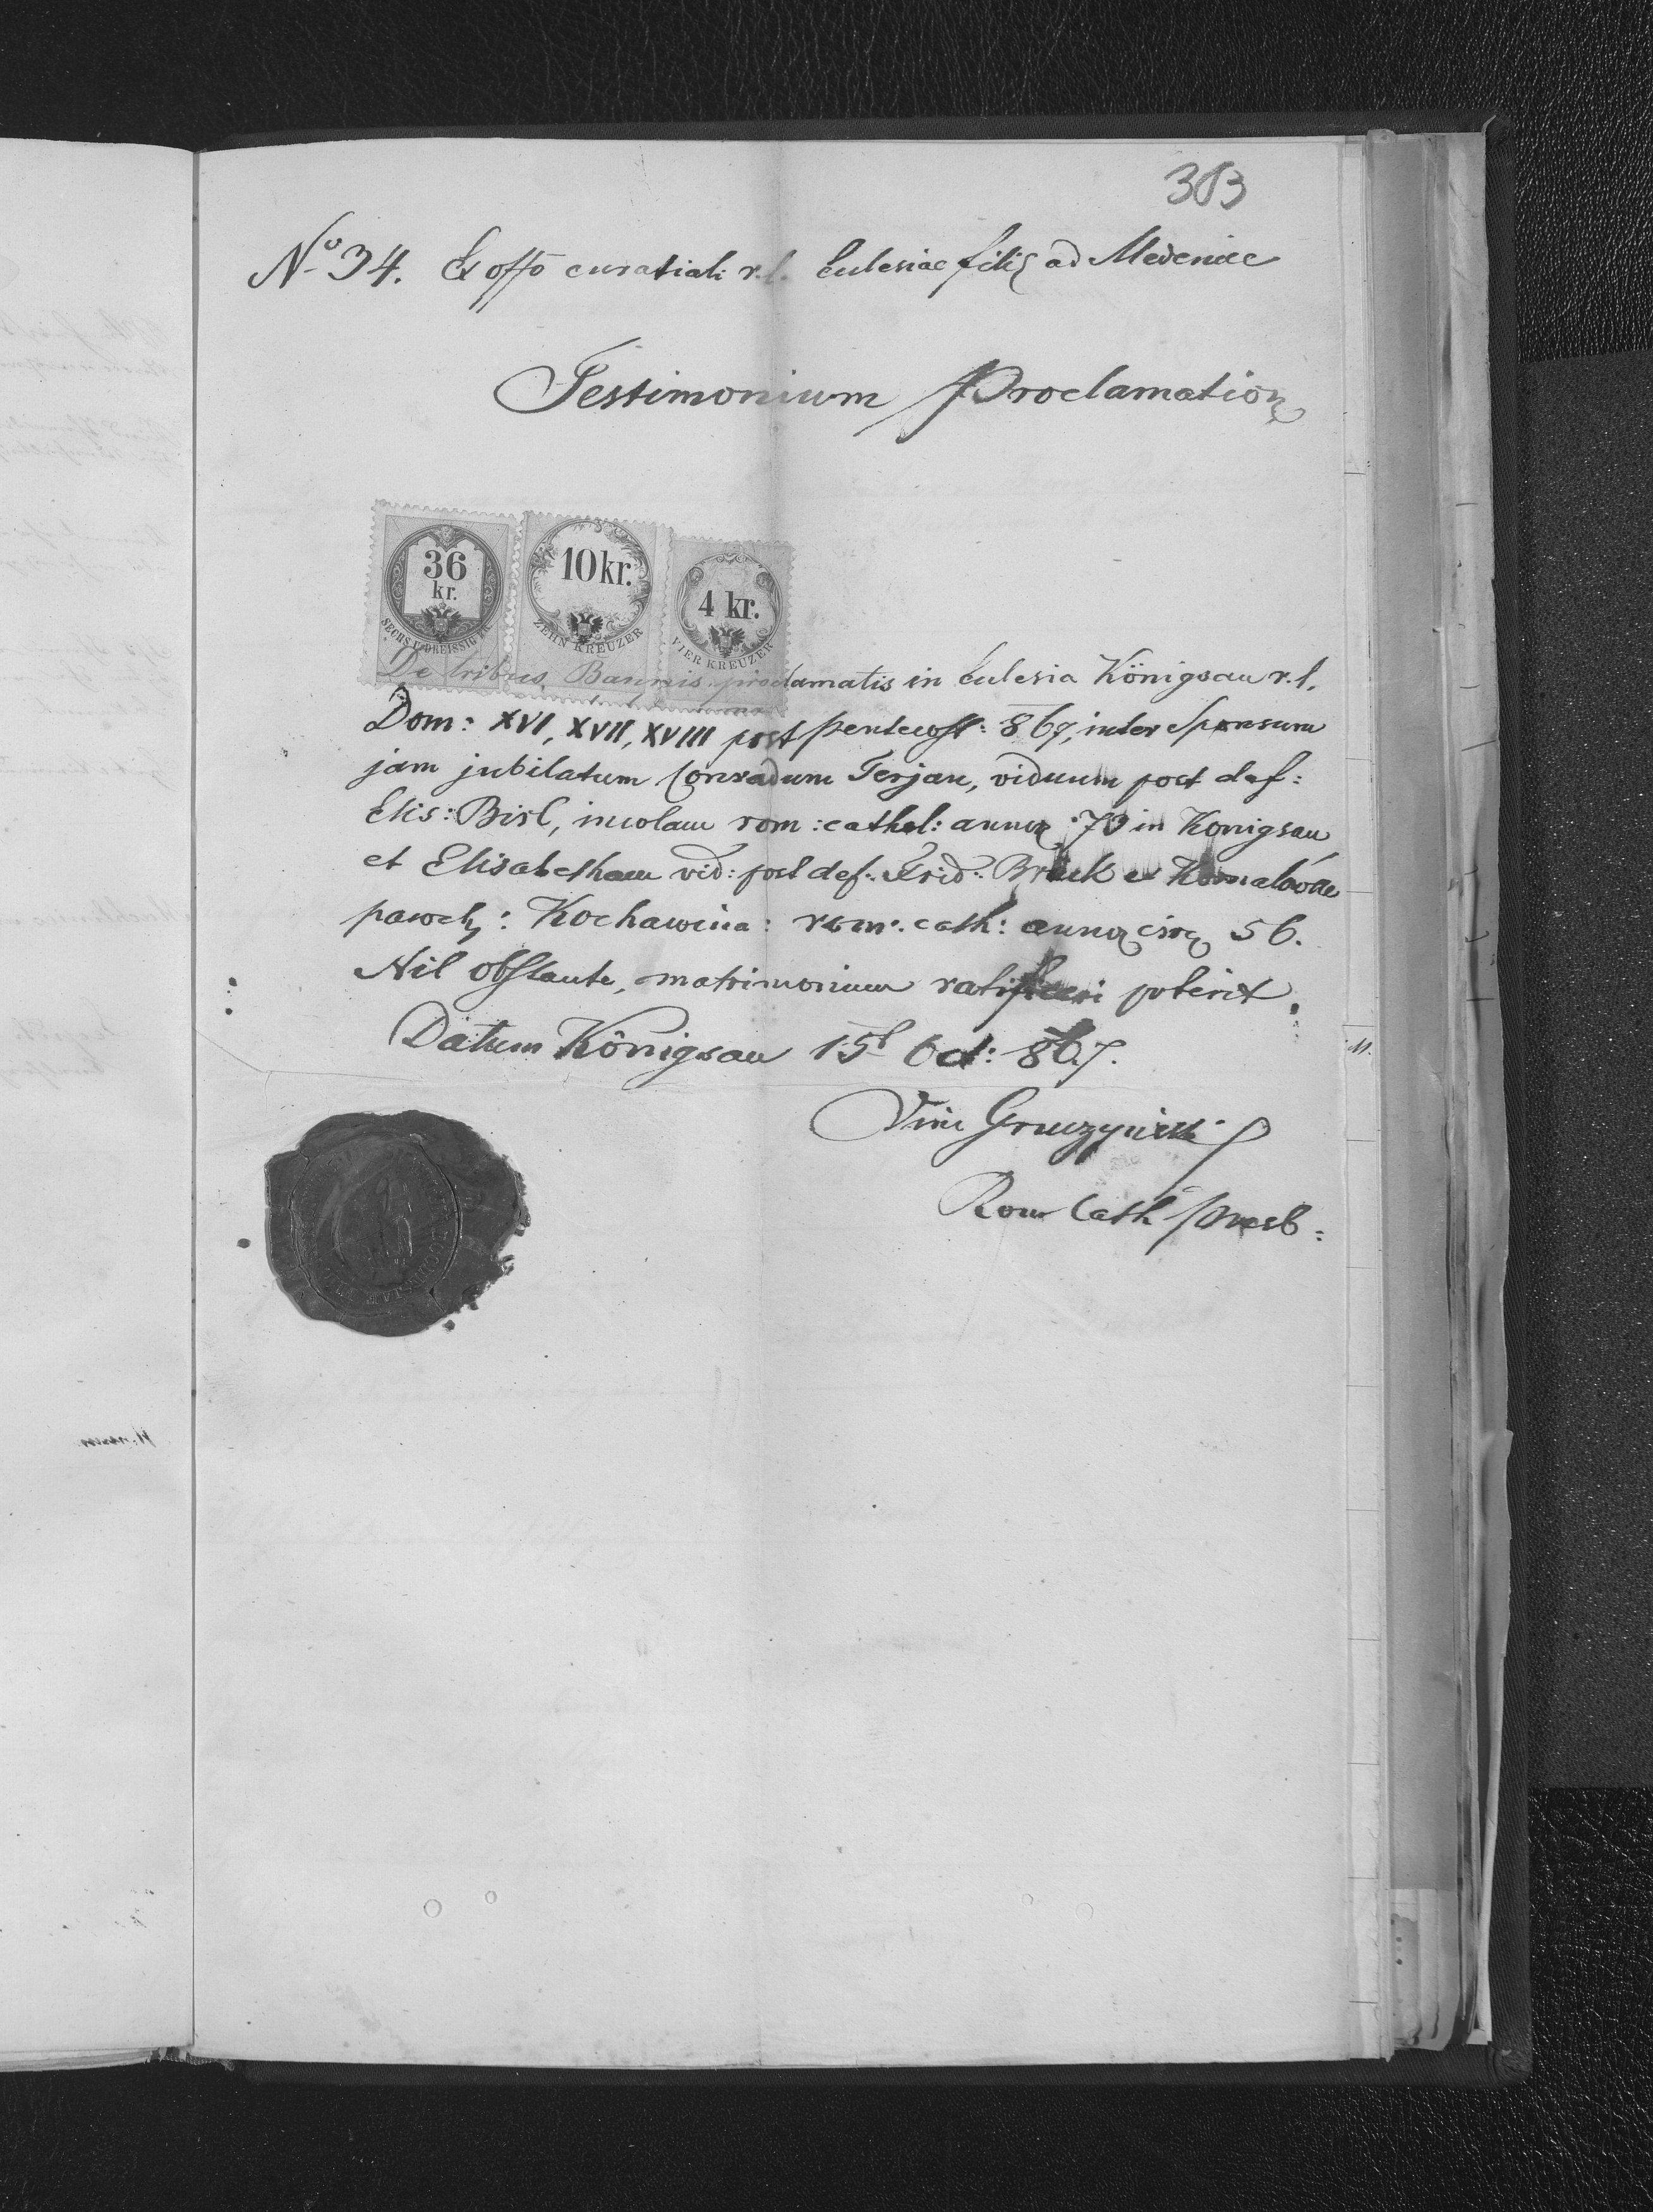 303
No 34. Ex offo curatiali r. l. Eclesiae filis ad Medenice
Testimonium Proclamationis
36 kr. 10 kr. 4 kr.
ZEHN KREUZER VIER KREUZER
De tribus Bannis proclamatis in Eclesia Königsau r. l.
Dom: XVI, XVII, XVIII post pentecost: 867, inter Sponsum
jam jubilatum Conradum Terjan, viduum post def:
Elis: Birl, incolam rom: cathol: annor 70 in Königsau
et Elisabetham vid: post def: Frid: Bruck e
paroch: Kochawina: rom: cath: annor circ 56.
Nil obstante, matrimonium ratificari poterit.
Datum Königsau 15t Oct: 867.
Vinc Gruczynski
Rom Cath Presb: